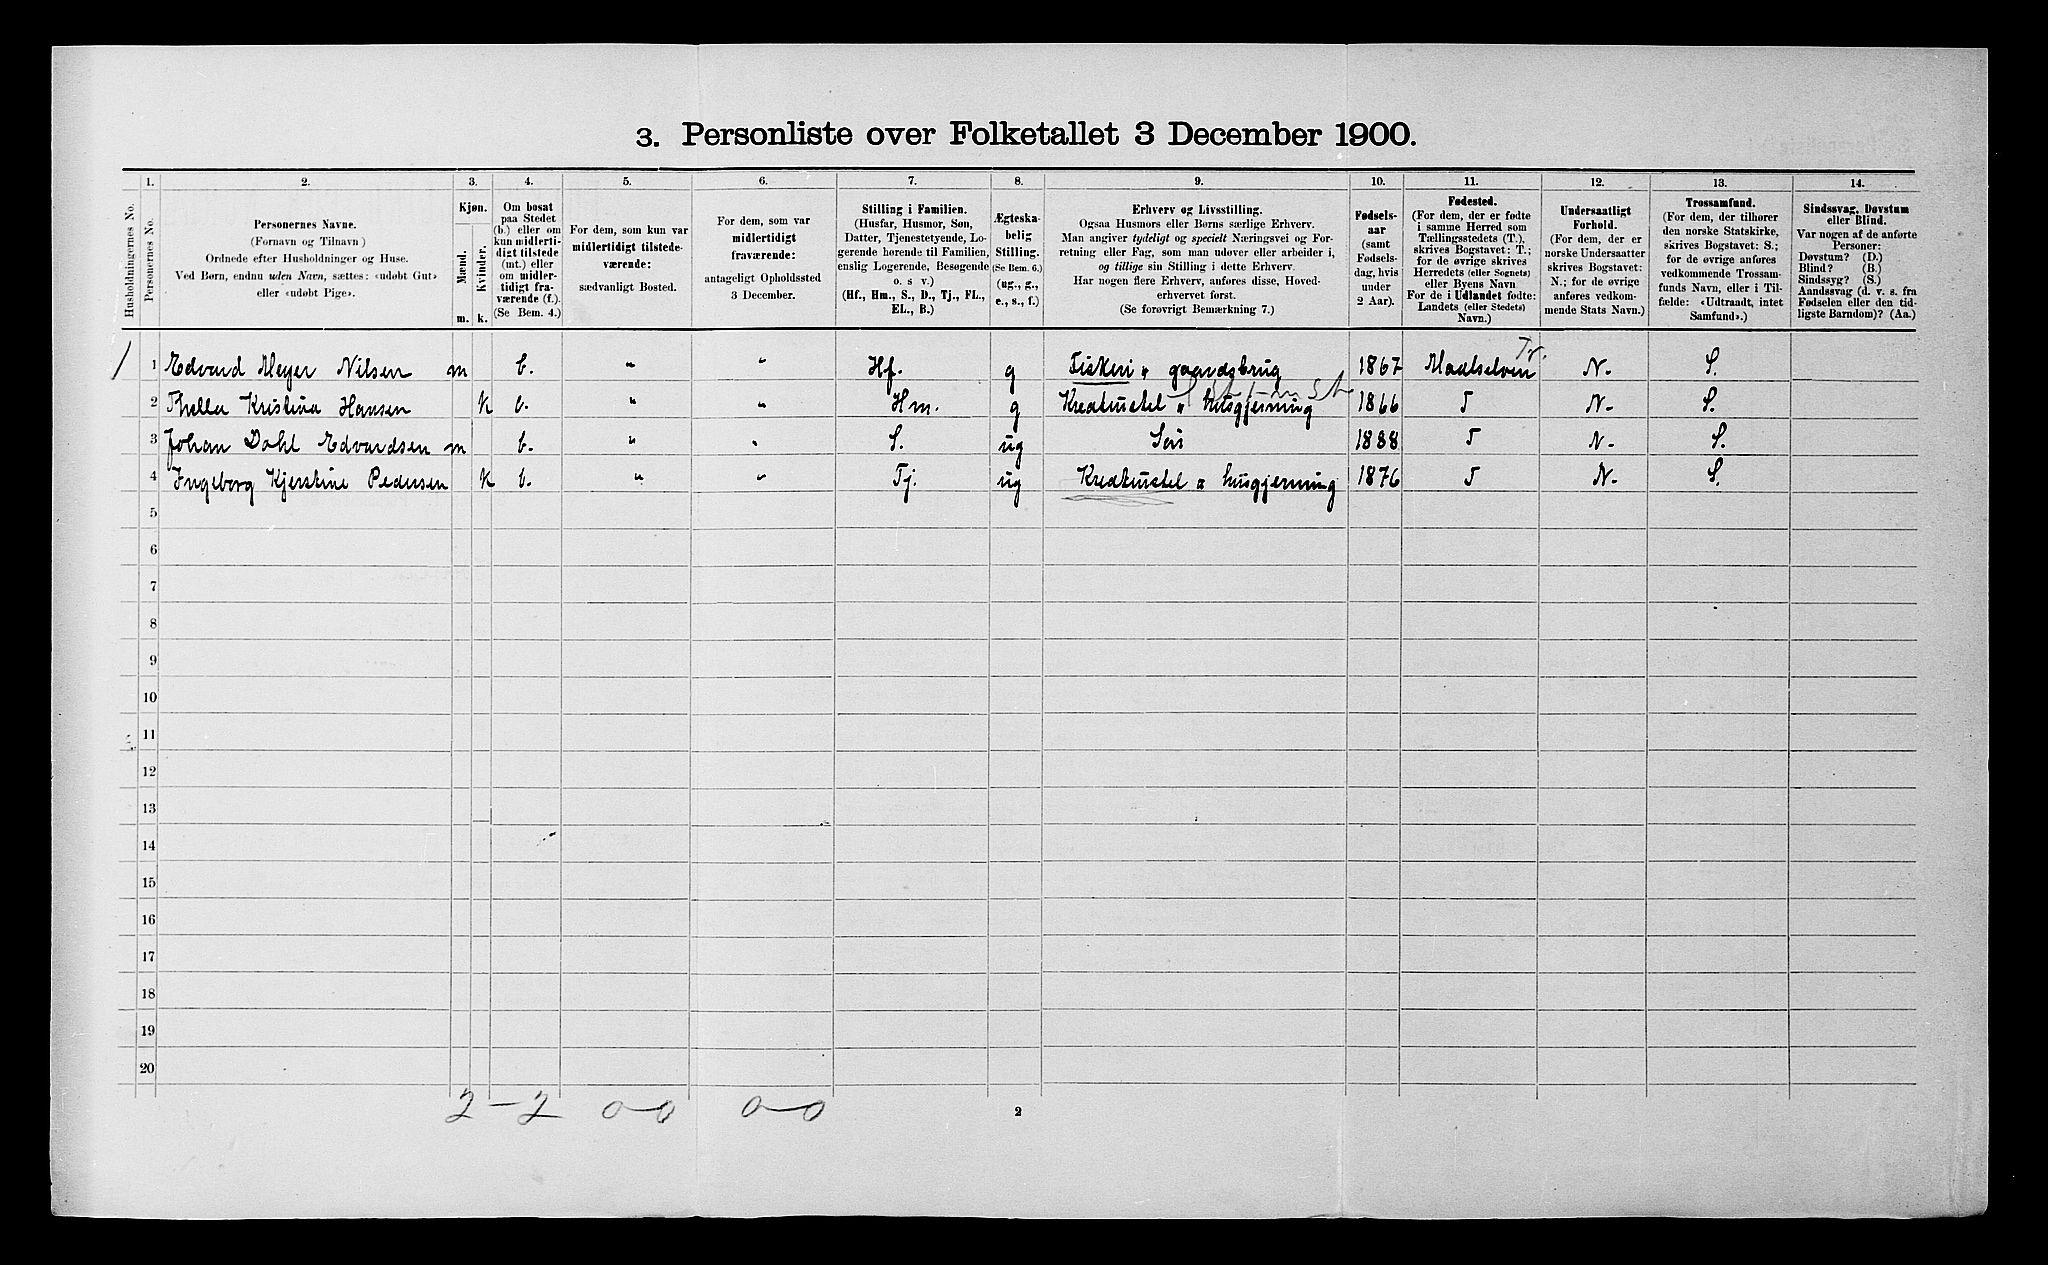 3. Personliste over Folketallet 3 December 1900.
Husholdningernes No.
1. Personernes No.
2. Personernes Navne. (Fornavn og Tilnavn) Ordnede efter Husholdninger og Huse. Ved Børn, endnu uden Navn, sættes: «udøbt Gut» eller «udøbt Pige».
3. Kjøn. Mænd. m. Kvinder. k.
4. Om bosat paa Stedet (b.) eller om kun midlertidigt tilstede (mt.) eller om midlertidigt fraværende (f.) (Se Bem. 4.)
5. For dem, som kun var midlertidigt tilstedeværende: sædvanligt Bosted.
6. For dem, som var midlertidigt fraværende: antageligt Opholdssted 3 December.
7. Stilling i Familien. (Husfar, Husmor, Søn, Datter, Tjenestetyende, Logerende hørende til Familien, enslig Logerende, Besøgende o. s v.) (Hf., Hm., S., D., Tj., FL., EL., B.)
8. Ægteskabelig Stilling. (Se Bem. 6.) (ug., g., e., s., f.)
9. Erhverv og Livsstilling. Ogsaa Husmors eller Børns særlige Erhverv. Man angiver tydeligt og specielt Næringsvei og Forretning eller Fag, som man udøver eller arbeider i, og tillige sin Stilling i dette Erhverv. Har nogen flere Erhverv, anføres disse, Hovederhvervet først. (Se forøvrigt Bemærkning 7.)
10. Fødselsaar (samt Fødselsdag, hvis under 2 Aar).
11. Fødested. (For dem, der er fødte i samme Herred som Tællingsstedets (T.), skrives Bogstavet: T.; for de øvrige skrives Herredets (eller Sognets) eller Byens Navn For de i Udlandet fødte: Landets (eller Stedets) Navn.)
12. Undersaatligt Forhold. (For dem, der er norske Undersaatter skrives Bogstavet: N.; for de øvrige anføres vedkommende Stats Navn.)
13. Trossamfund. (For dem, der tilhører den norske Statskirke, skrives Bogstavet: S.; for de øvrige anføres vedkommende Trossamfunds Navn, eller i Tilfælde: «Udtraadt, intet Samfund».)
14. Sindssvag, Døvstum eller Blind. Var nogen af de anførte Personer: Døvstum? (D.) Blind? (B.) Sindssyg? (S.) Aandssvag (d. v. s. fra Fødselen eller den tidligste Barndom)? (Aa.)
1 1 Edvard Meyer Nilsen m b. " " Hf. g Fiskeri " gaardsbrug 1867 Maalselven Tr. N. S.
2 Thella Kristina Hansen k b. " " Hm. g Kreaturstel " husgjerning 1866 T N. S.
3 Johan Dahl Edvardsen m b. " " S. ug Søn 1888 T N. S.
4 Ingeborg Kjerstine Pedersen k b. " " Tj. ug Kreaturstel " husgjerning 1876 T N. S.
5
6
7
8
9
10
11
12
13
14
15
16
17
18
19
20
2 - 2 0-0 0-0
2